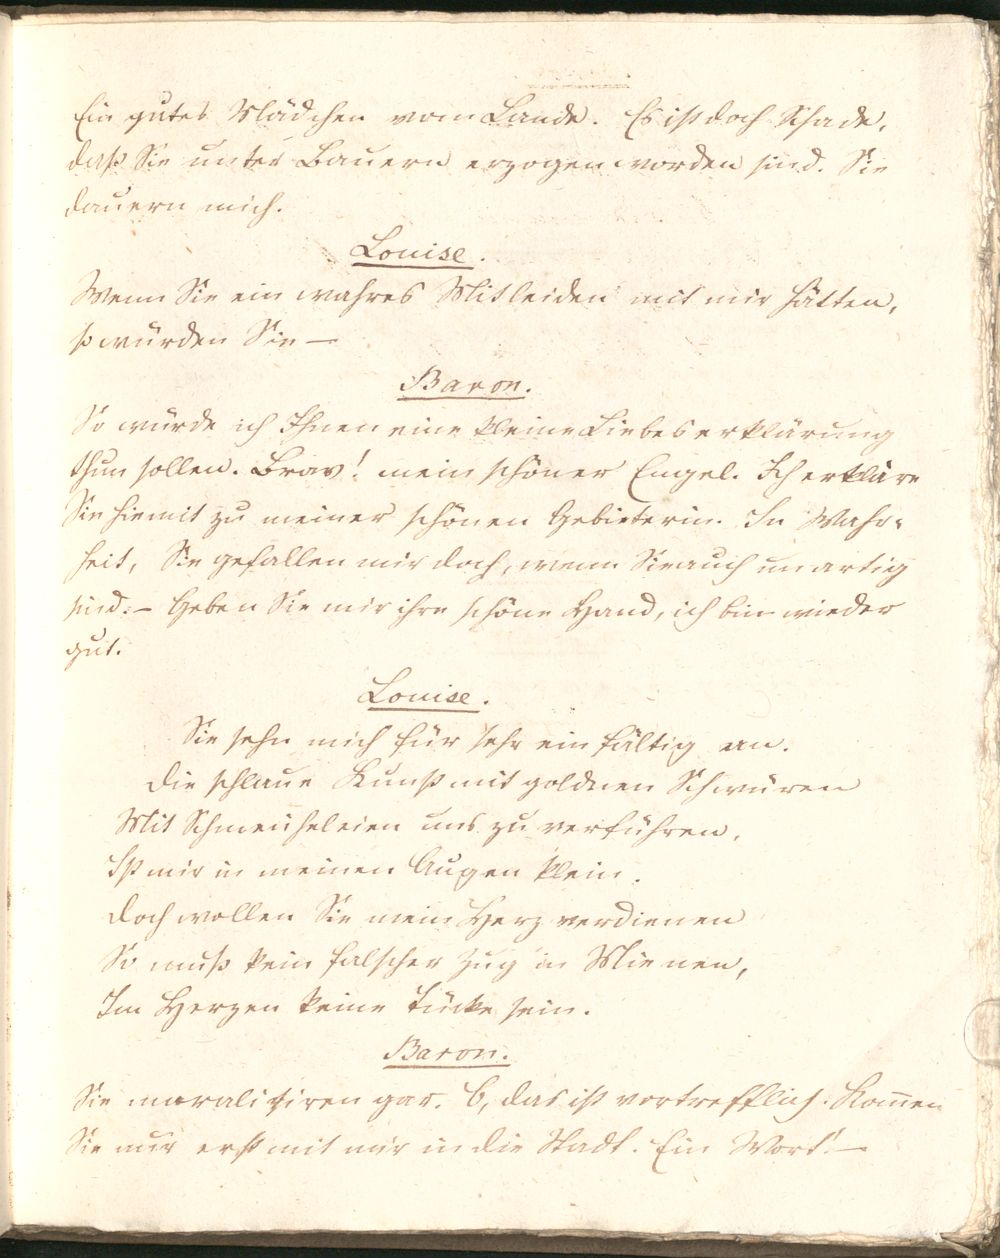 Ein gutes Mädchen vom Lande. Es ist doch Schade,
daß Sie unter Bauern erzogen worden sind. Sie
dauern mich.
Louise.
Wenn Sie ein wahres Mitleiden mit mir hätten,
so würden Sie —
Baron.
So würde ich Ihnen eine kleine Liebeserklärung
thun sollen. Brav! mein schöner Engel. Ich erkläre
Sie hiemit zu meiner schönen Gebieterin. In Wahr-
heit, Sie gefallen mir doch, wenn Sie auch unartig
sind. — Geben Sie mir ihre schöne Hand, ich bin wieder
gut.
Louise.
Sie sehn mich für sehr einfältig an.
Die schlaue Kunst mit goldnen Schwüren
Mit Schmeicheleien uns zu verführen,
Ist mir in meinen Augen klein.
Doch wollen Sie mein Herz verdienen
So muß kein falscher Zug in Mienen,
Im Herzen keine Tücke sein.
Baron.
Sie moralisiren gar. O, das ist vortrefflich. Kom̅en
Sie nur erst mit mir in die Stadt. Ein Wort! —